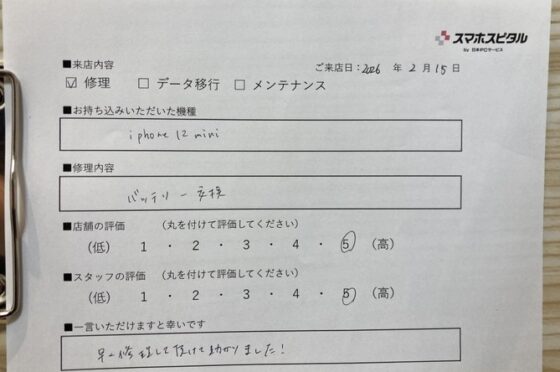 スマホスピタル
by 日本PCサービス
■来店内容
ご来店日：2026 年 2 月 15 日
☑ 修理 □ データ移行 □ メンテナンス
■お持ち込みいただいた機種
iphone 12 mini
■修理内容
バッテリー交換
■店舗の評価 （丸を付けて評価してください）
（低） 1 ・ 2 ・ 3 ・ 4 ・ 5 （高）
■スタッフの評価 （丸を付けて評価してください）
（低） 1 ・ 2 ・ 3 ・ 4 ・ 5 （高）
■一言いただけますと幸いです
早く修理して頂けて助かりました！